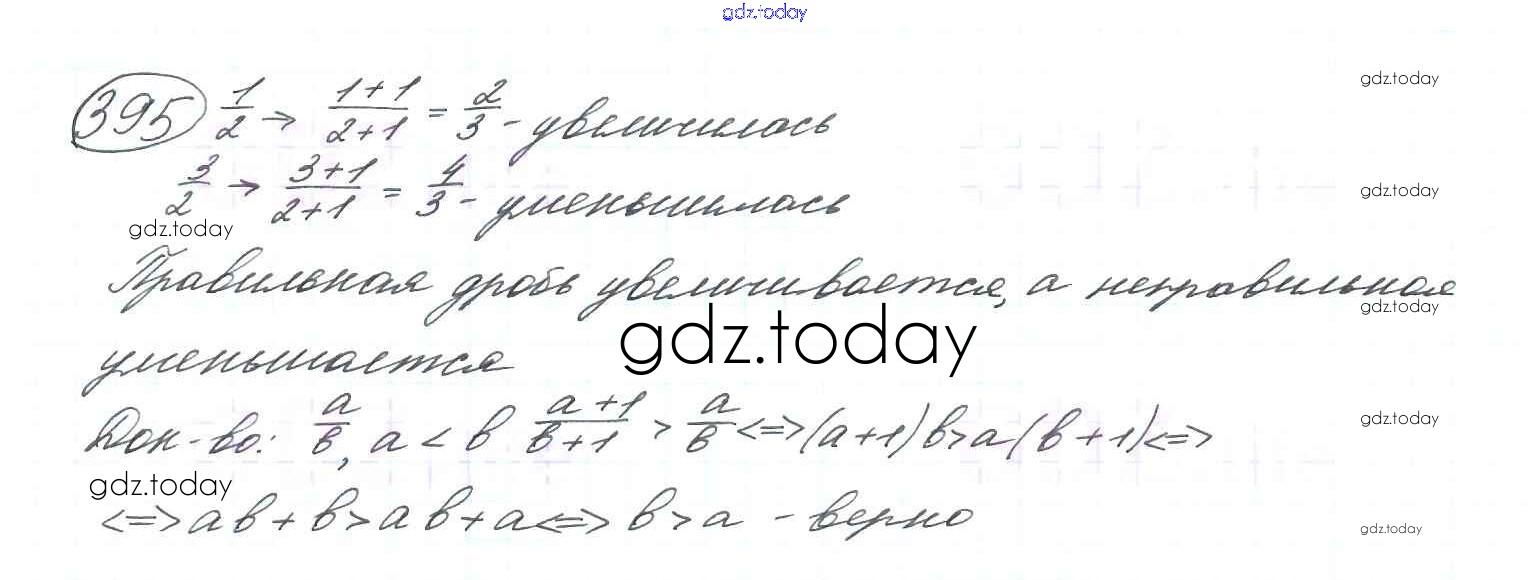 gdz.today
gdz.today
395 1/2 → (1+1)/(2+1) = 2/3 - увеличилась
3/2 → (3+1)/(2+1) = 4/3 - уменьшилась
gdz.today
gdz.today
Правильная дробь увеличивается, а неправильная
gdz.today
gdz.today
уменьшается
Док-во: a/в, a < в (a+1)/(в+1) > a/в <=> (a+1)в > a(в+1) <=>
gdz.today
gdz.today
<=> aв + в > aв + a <=> в > a - верно
gdz.today